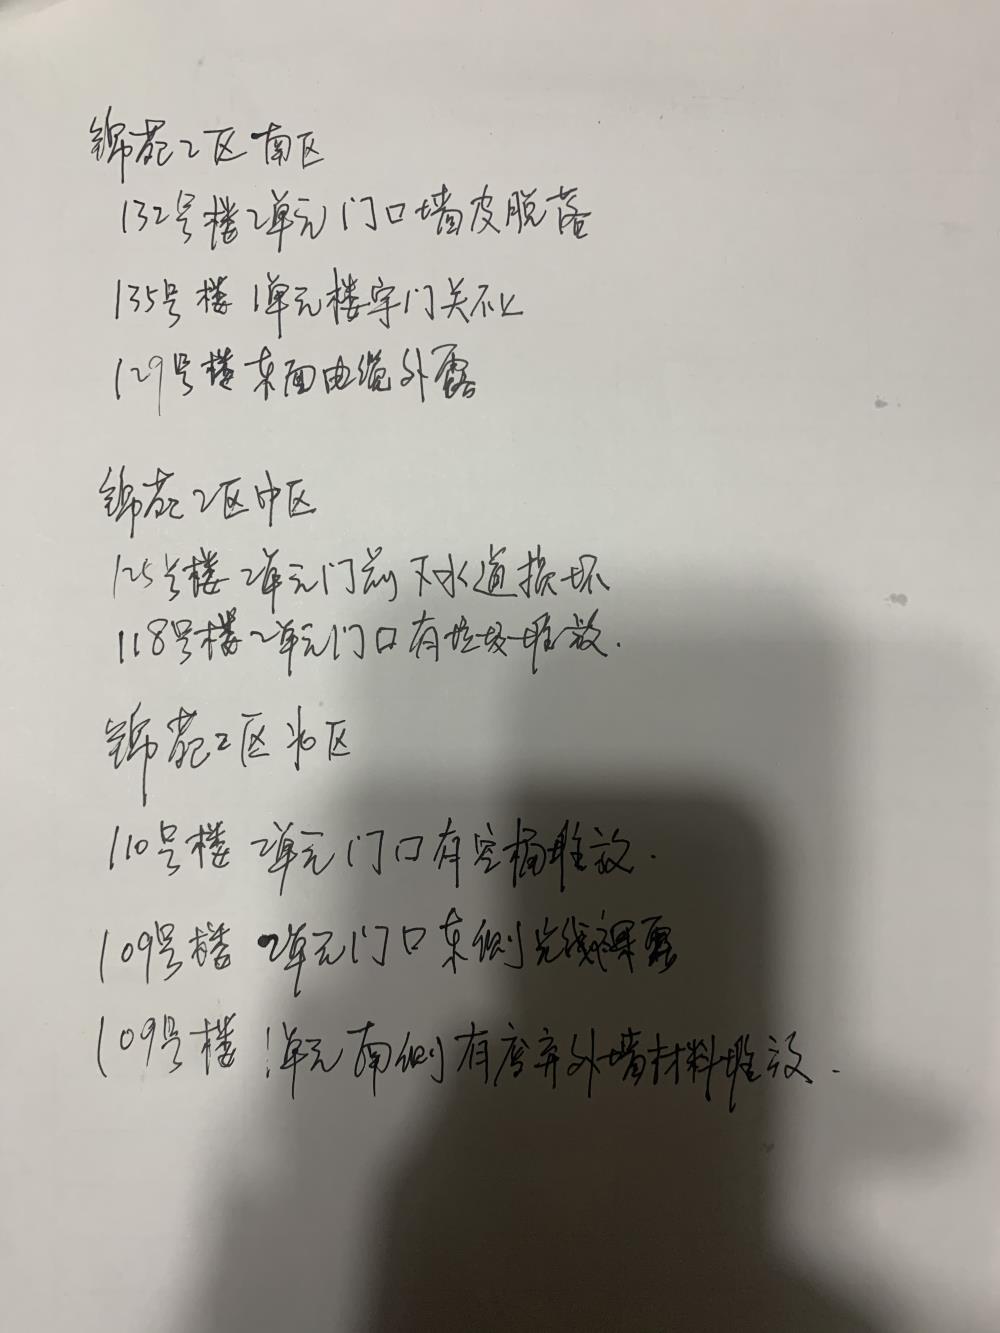 锦苑2区南区
132号楼2单元门口墙皮脱落
135号楼1单元楼宇门关不上
129号楼东面电缆外露
锦苑2区中区
125号楼2单元门前下水道损坏
118号楼2单元门口有垃圾堆放.
锦苑2区北区
110号楼2单元门口有空桶堆放.
109号楼2单元门口东侧光缆裸露
109号楼1单元南侧有废弃外墙材料堆放.